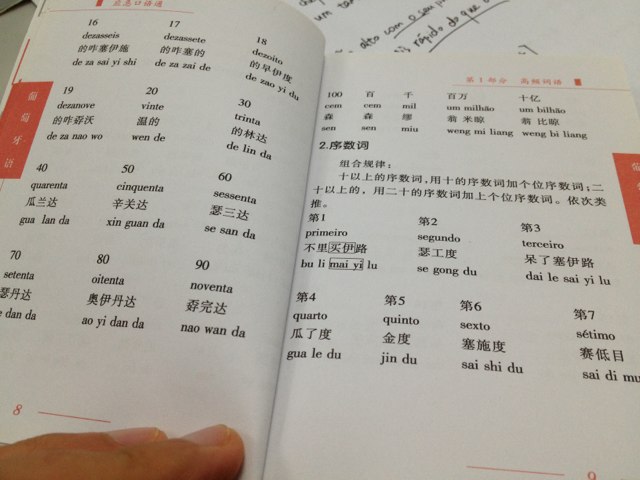 应急口语通
葡萄牙语
16 17 18
dezasseis dezassete dezoito
的咋塞伊施 的咋塞的 的早伊度
de za sai yi shi de za zai de de zao yi du
19 20 30
dezanove vinte trinta
的咋孬沃 温的 的林达
de za nao wo wen de de lin da
40 50 60
quarenta cinquenta sessenta
瓜兰达 辛关达 瑟三达
gua lan da xin guan da se san da
70 80 90
setenta oitenta noventa
瑟丹达 奥伊丹达 孬完达
e dan da ao yi dan da nao wan da
8
alto com o seu
rápido do que o
第1部分 高频词语
100 百 千 百万 十亿
cem cem mil um milhão um bilhão
森 森 缪 翁 米晾 翁 比晾
sen sen miu weng mi liang weng bi liang
2.序数词
组合规律:
十以上的序数词,用十的序数词加个位序数词;二
十以上的,用二十的序数词加上个位序数词。依次类
推。
第1 第2 第3
primeiro segundo terceiro
不里买伊路 瑟工度 呆了塞伊路
bu li mai yi lu se gong du dai le sai yi lu
第4 第5 第6 第7
quarto quinto sexto sétimo
瓜了度 金度 塞施度 赛低目
gua le du jin du sai shi du sai di mu
9